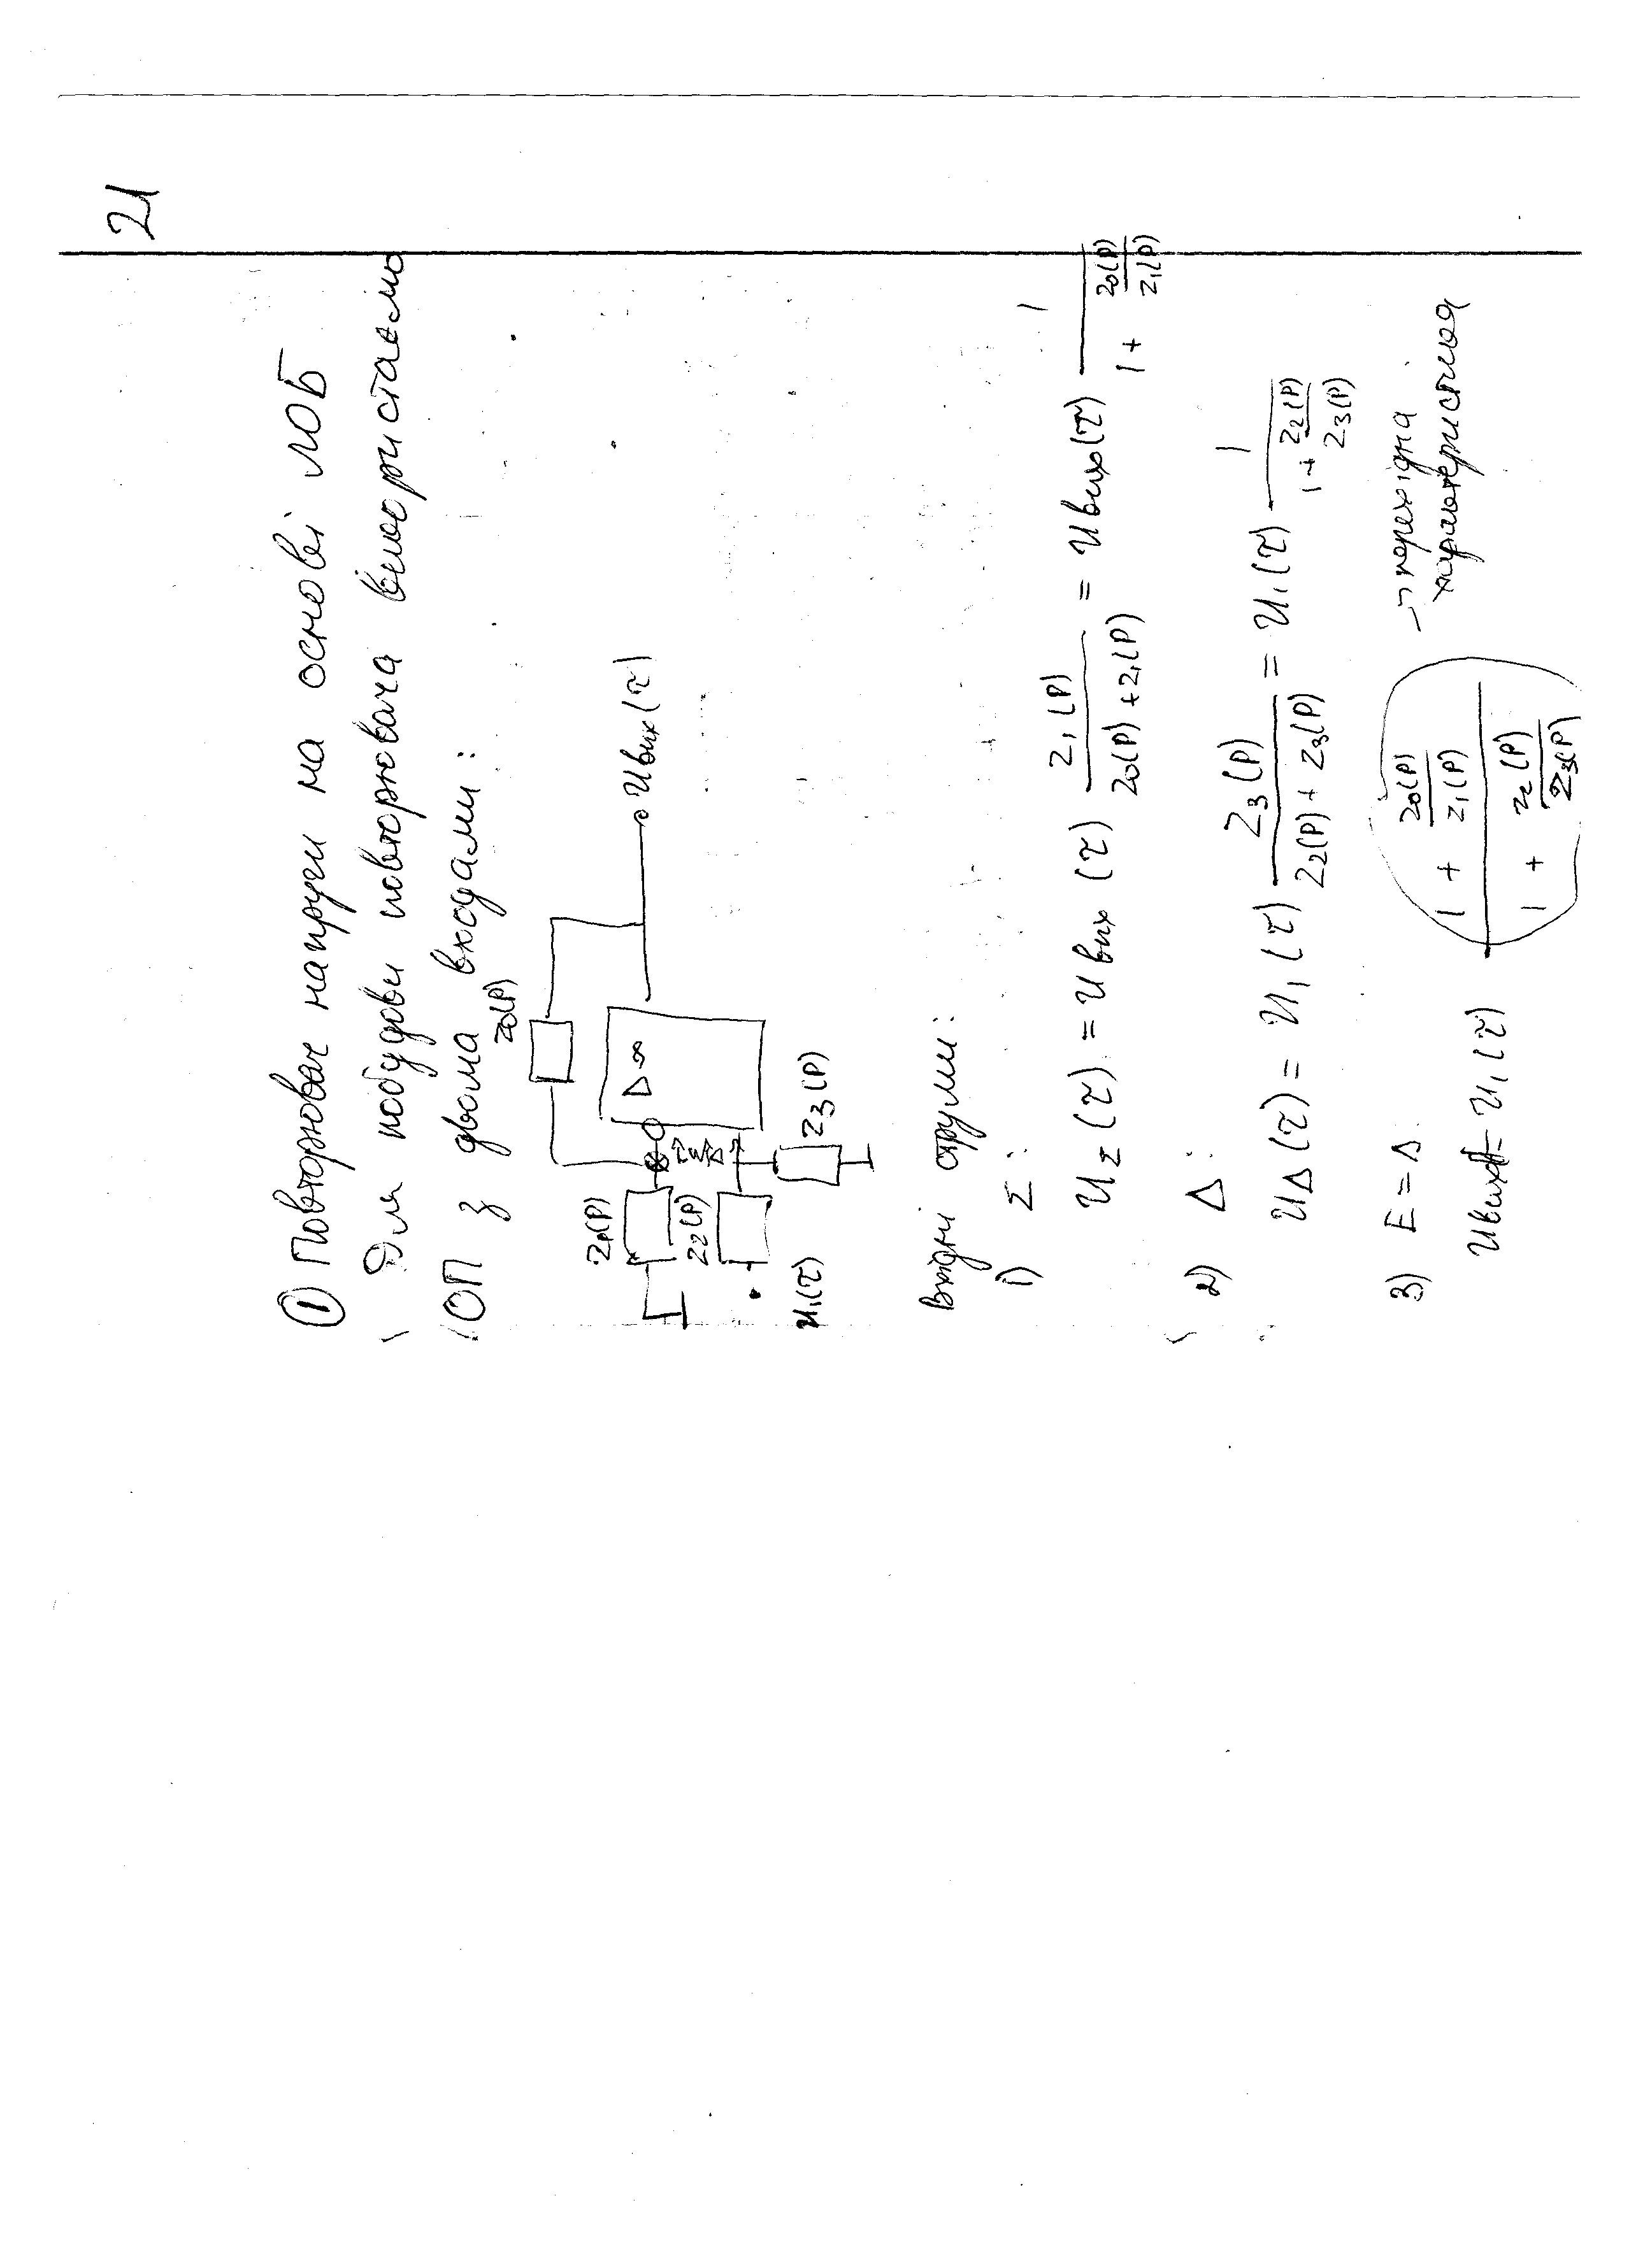 21
① Повторювач напруги на основі ЛОБ
Для побудови повторювача використаємо
ОП з двома входами:
Z0(P)
Z1(P)
Δ∞
Uвих(τ)
Z2(P)
Z3(P)
U1(τ)
Вхідні струми:
1) Σ:
UΣ(τ) = Uвих(τ) Z1(P) / (Z0(P) + Z1(P)) = Uвих(τ) 1 / (1 + Z0(P)/Z1(P))
2) Δ:
UΔ(τ) = U1(τ) Z3(P) / (Z2(P) + Z3(P)) = U1(τ) 1 / (1 + Z2(P)/Z3(P))
3) Σ = Δ
Uвих = U1(τ) (1 + Z0(P)/Z1(P)) / (1 + Z2(P)/Z3(P)) → перехідна
характеристика